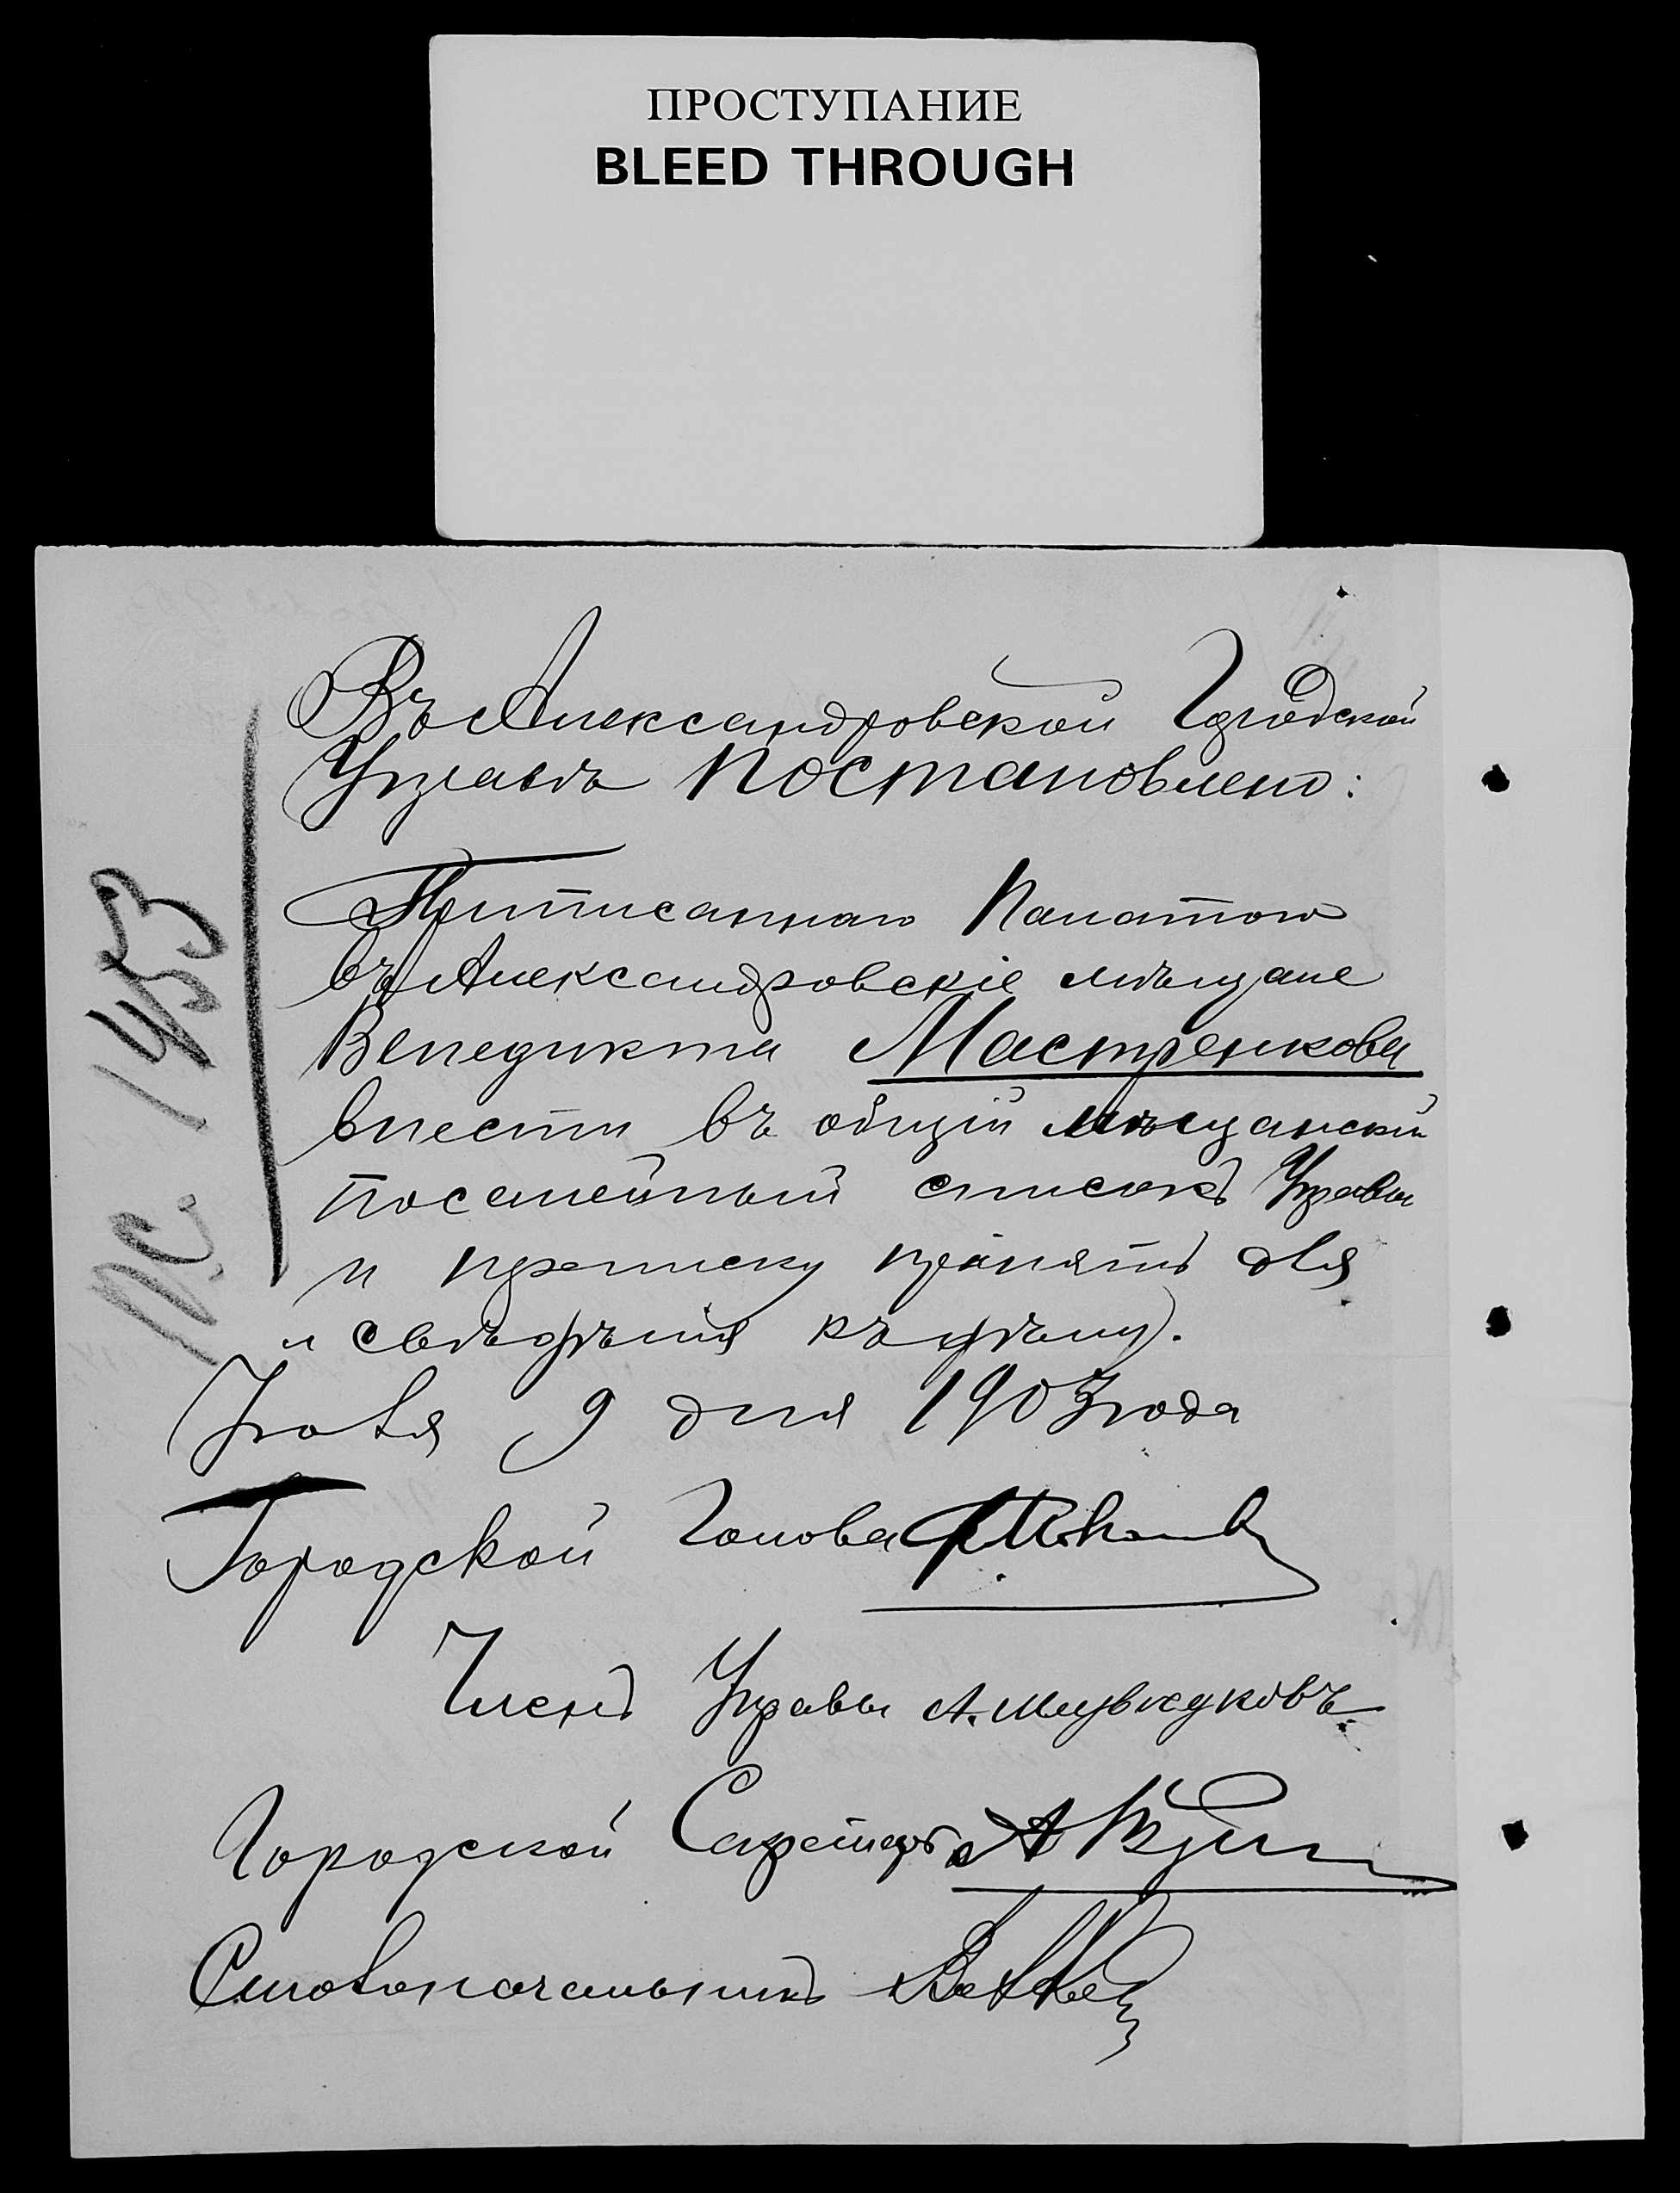 ПРОСТУПАНИЕ
BLEED THROUGH
Въ Александровской Городской
Управѣ постановлено:
Приписаннаго Палатою
въ Александровскіе мѣщане
Венедикта Мастренкова
внести въ общій мѣщанскій
посемейный списокъ Управы
и переписку принять для
и свѣдѣнія къ дѣлу.
Іюля 9 дня 1903 года
Городской Голова
Членъ Управы А.
Городской Секретарь А
Столоначальникъ
П.С. 1453